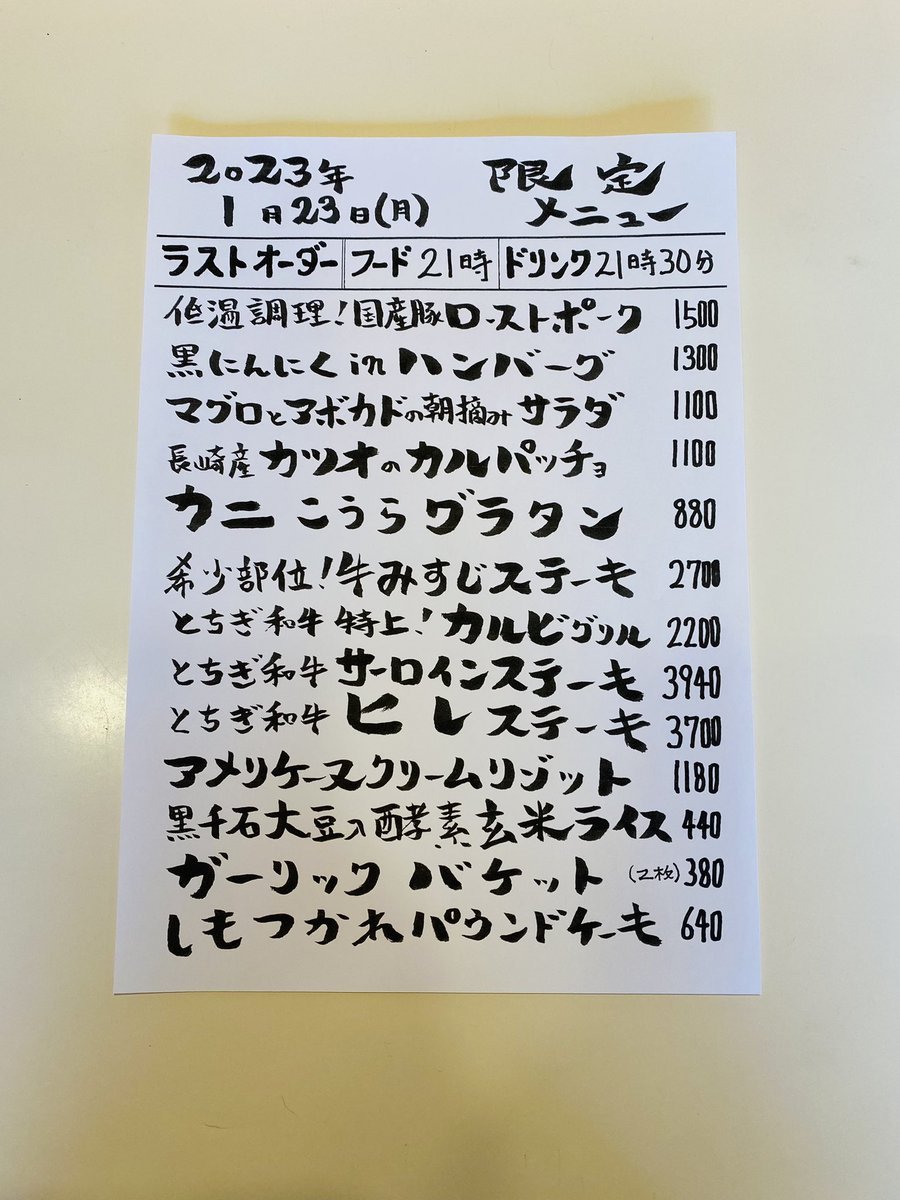 2023年
1月23日(月)
限定
メニュー
ラストオーダー フード21時 ドリンク21時30分
低温調理!国産豚ローストポーク 1500
黒にんにくinハンバーグ 1300
マグロとアボカドの朝摘みサラダ 1100
長崎産カツオのカルパッチョ 1100
カニこうらグラタン 880
希少部位!牛みすじステーキ 2700
とちぎ和牛特上!カルビグリル 2200
とちぎ和牛サーロインステーキ 3940
とちぎ和牛ヒレステーキ 3700
アメリケーヌクリームリゾット 1180
黒千石大豆入酵素玄米ライス 440
ガーリックバケット(2枚) 380
しもつかれパウンドケーキ 640